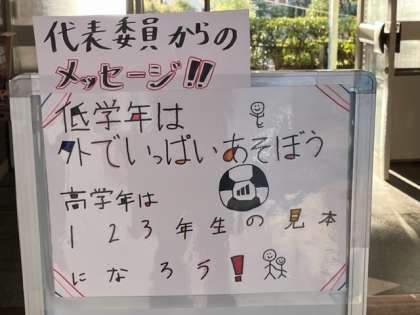 代表委員からの
メッセージ!!
低学年は
外でいっぱいあそぼう
高学年は
1 2 3 年生の見本
になろう!